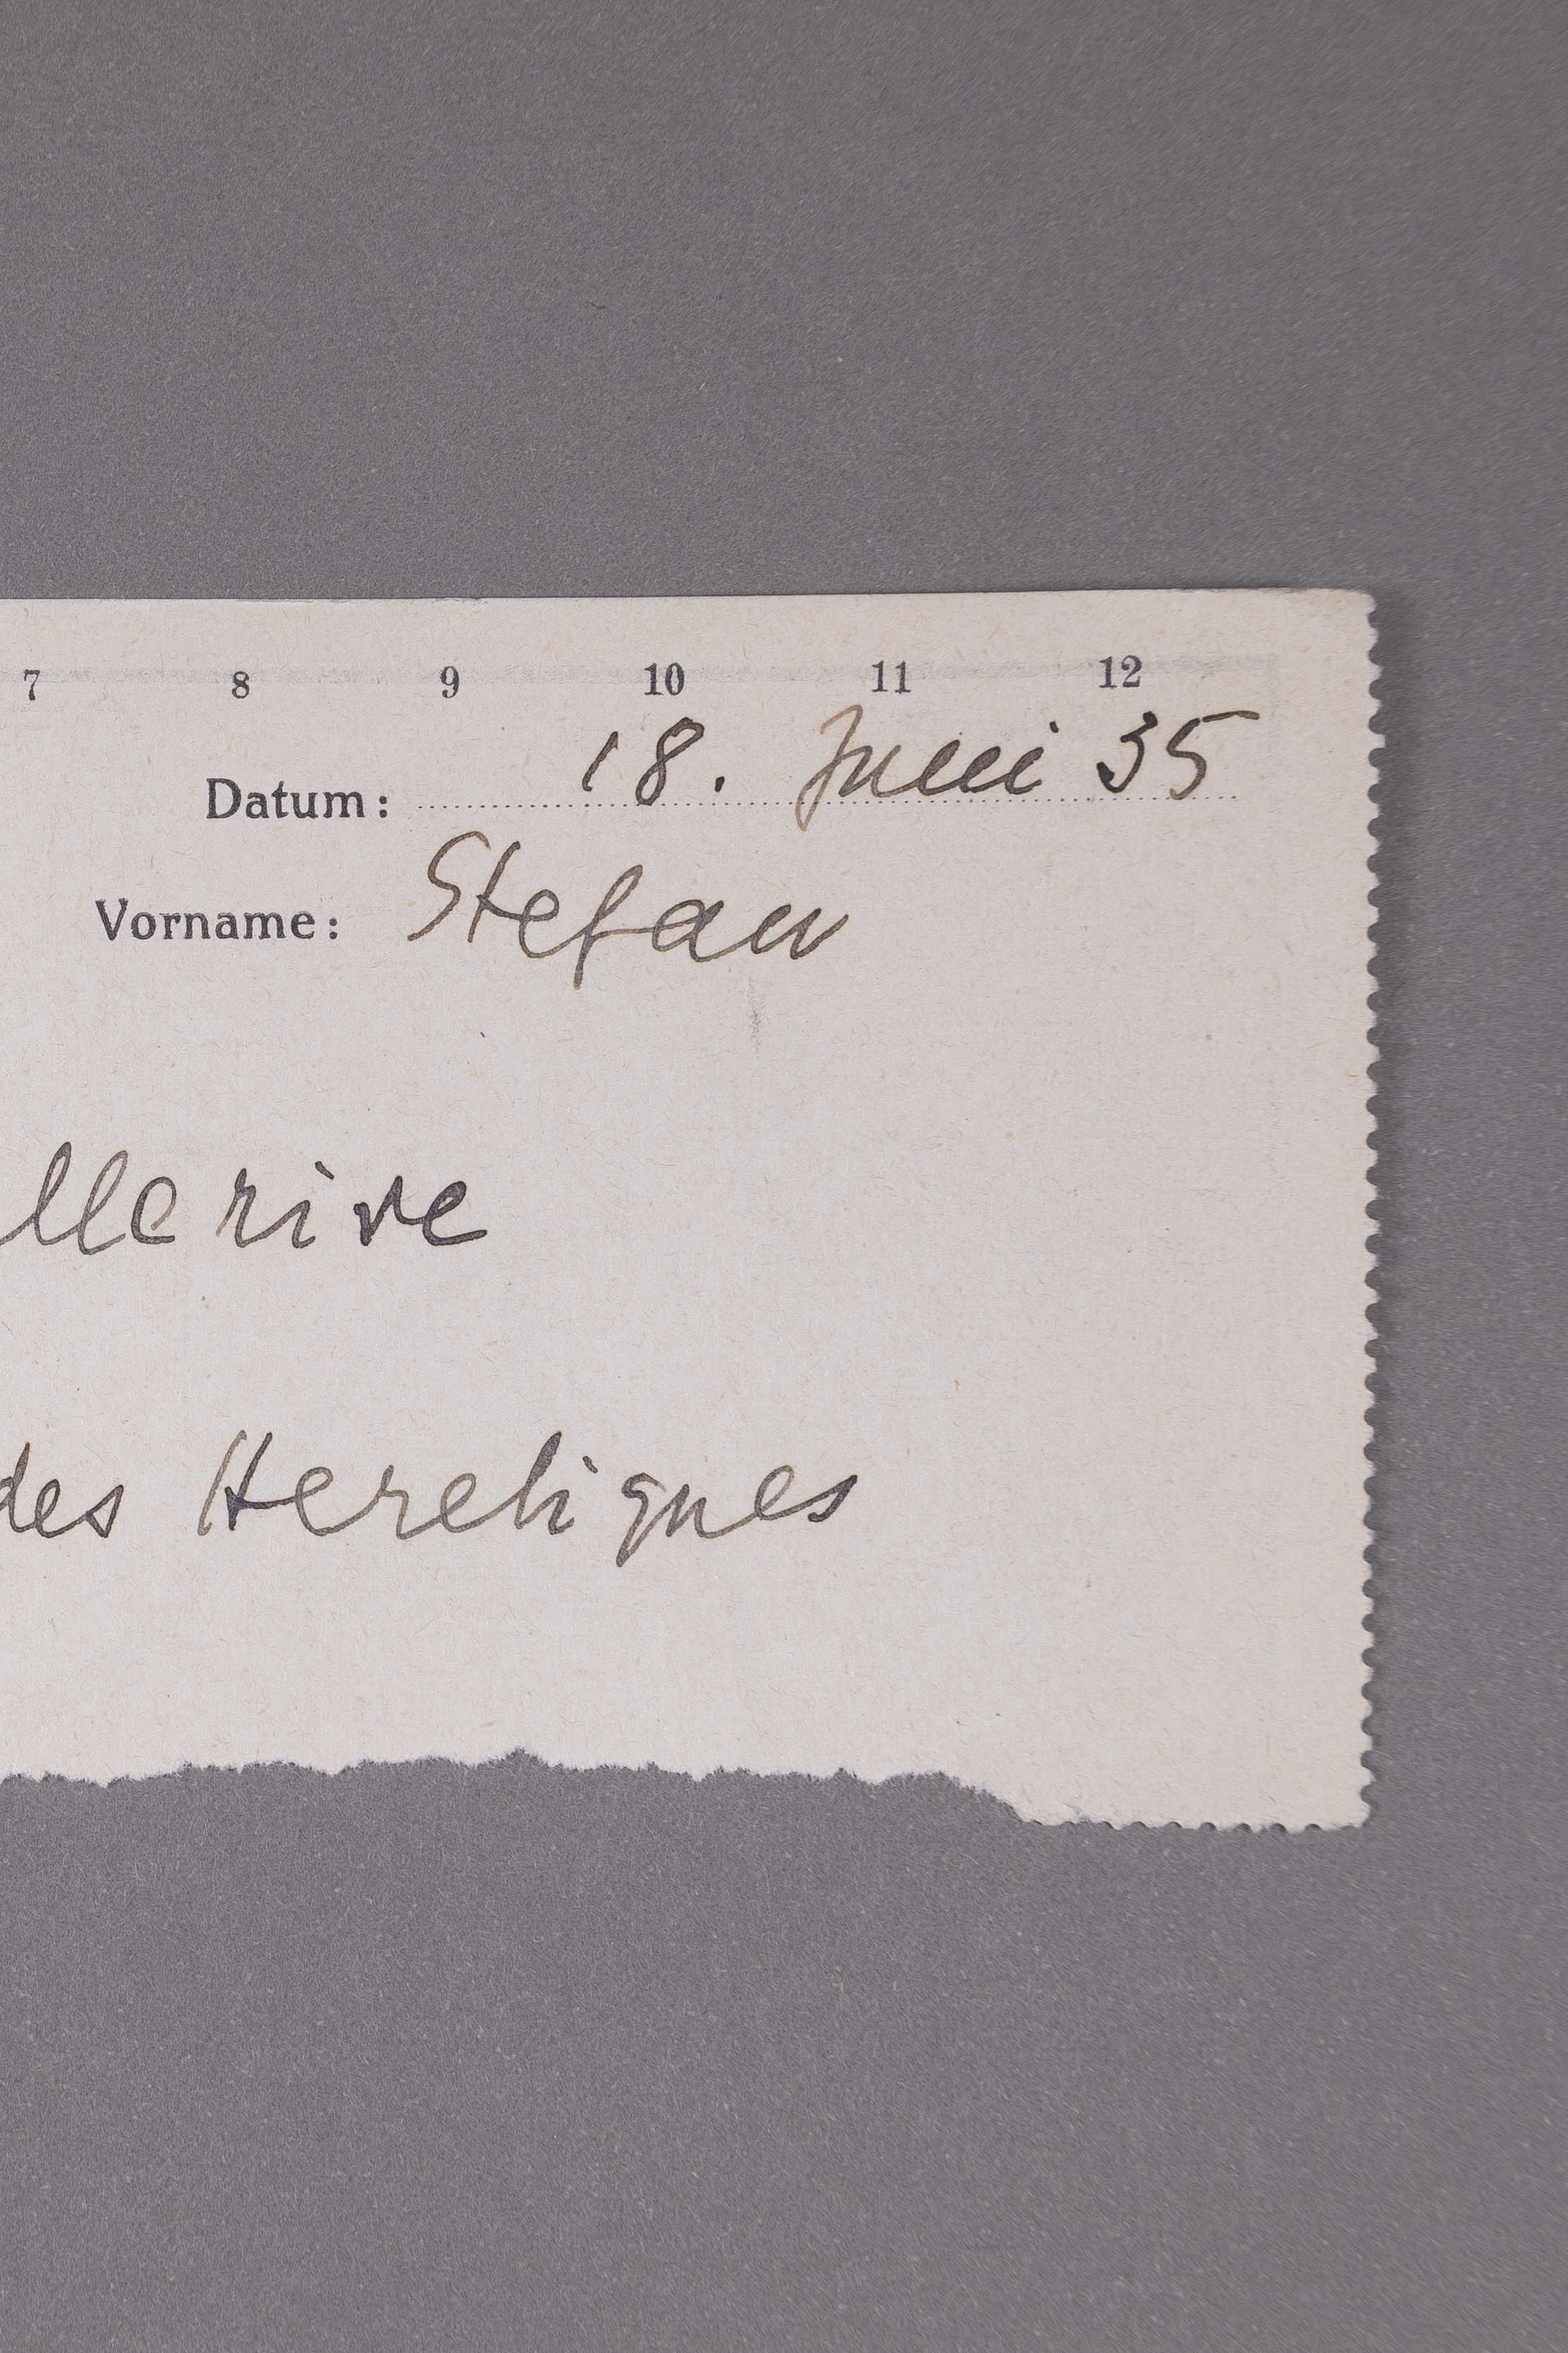 7 8 9 10 11 12
Datum: 18. Juni 35
Vorname: Stefan
llerive
des Heretiques